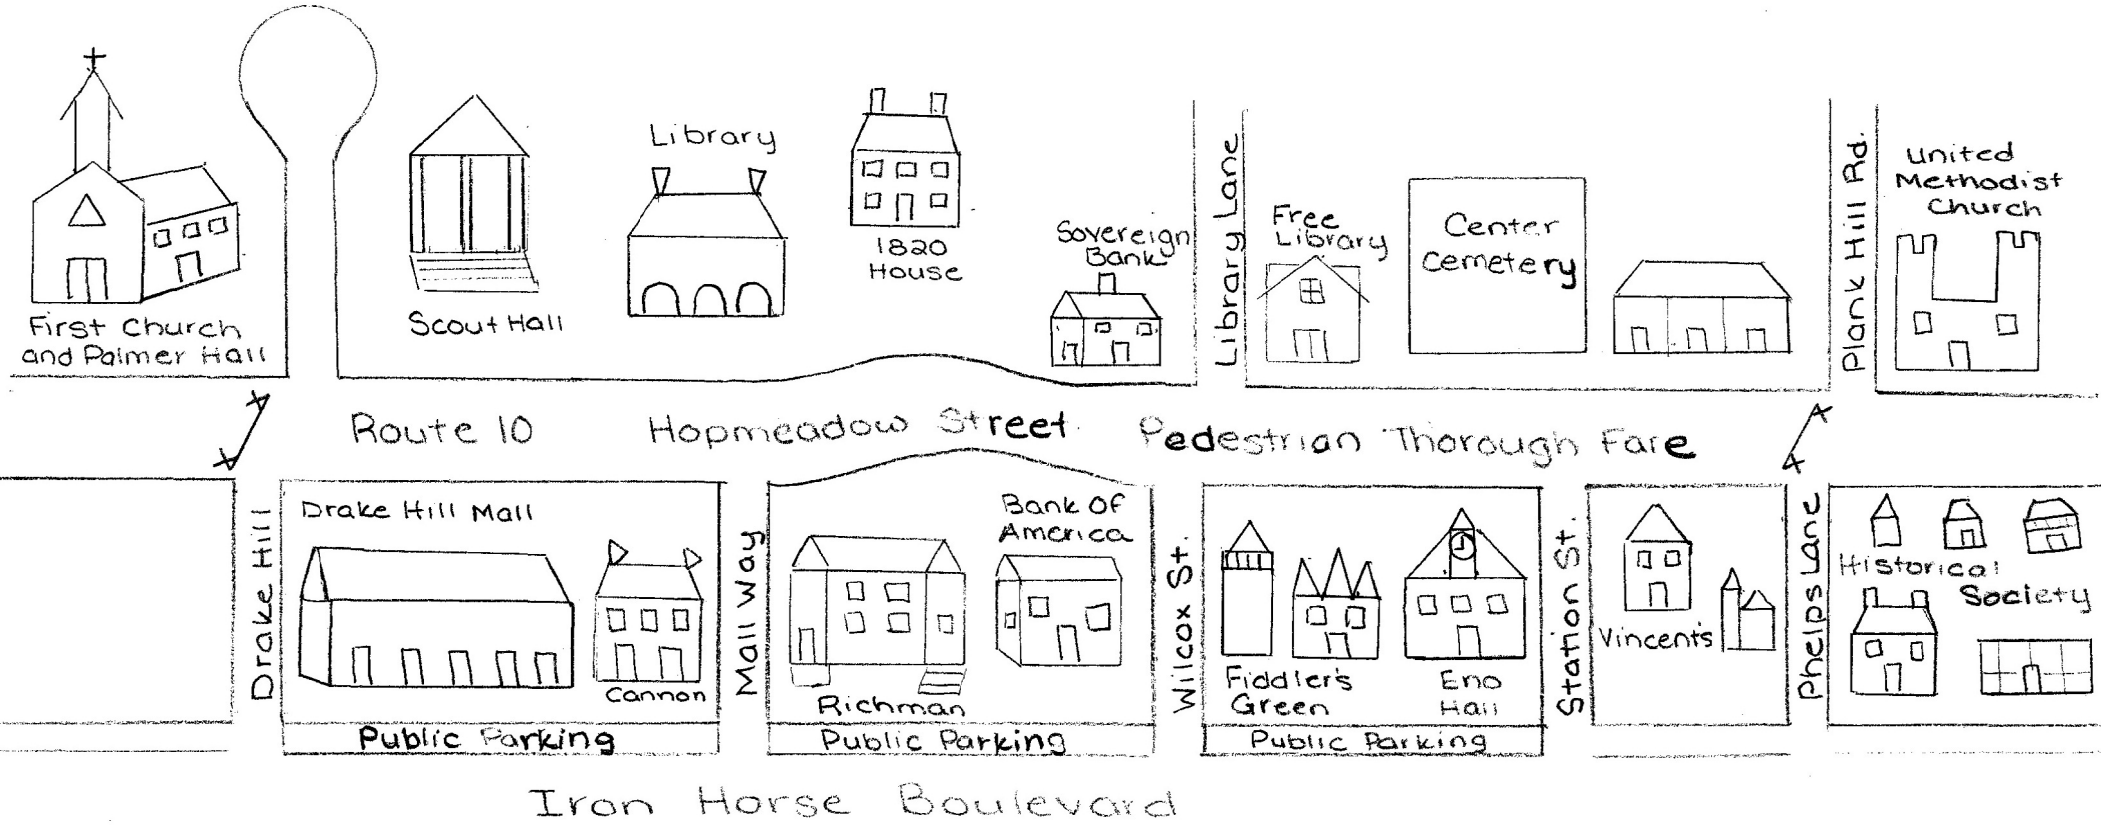 First Church
and Palmer Hall
Scout Hall
Library
1820
House
Sovereign
Bank
Library Lane
Free
Library
Center
Cemetery
Plank Hill Rd.
United
Methodist
Church
Route 10 Hopmeadow Street Pedestrian Thorough Fare
Drake Hill
Drake Hill Mall
Cannon
Public Parking
Mall Way
Richman
Bank Of
America
Public Parking
Wilcox St.
Fiddler's
Green
Eno
Hall
Public Parking
Station St.
Vincent's
Phelps Lane
Historical
Society
Iron Horse Boulevard